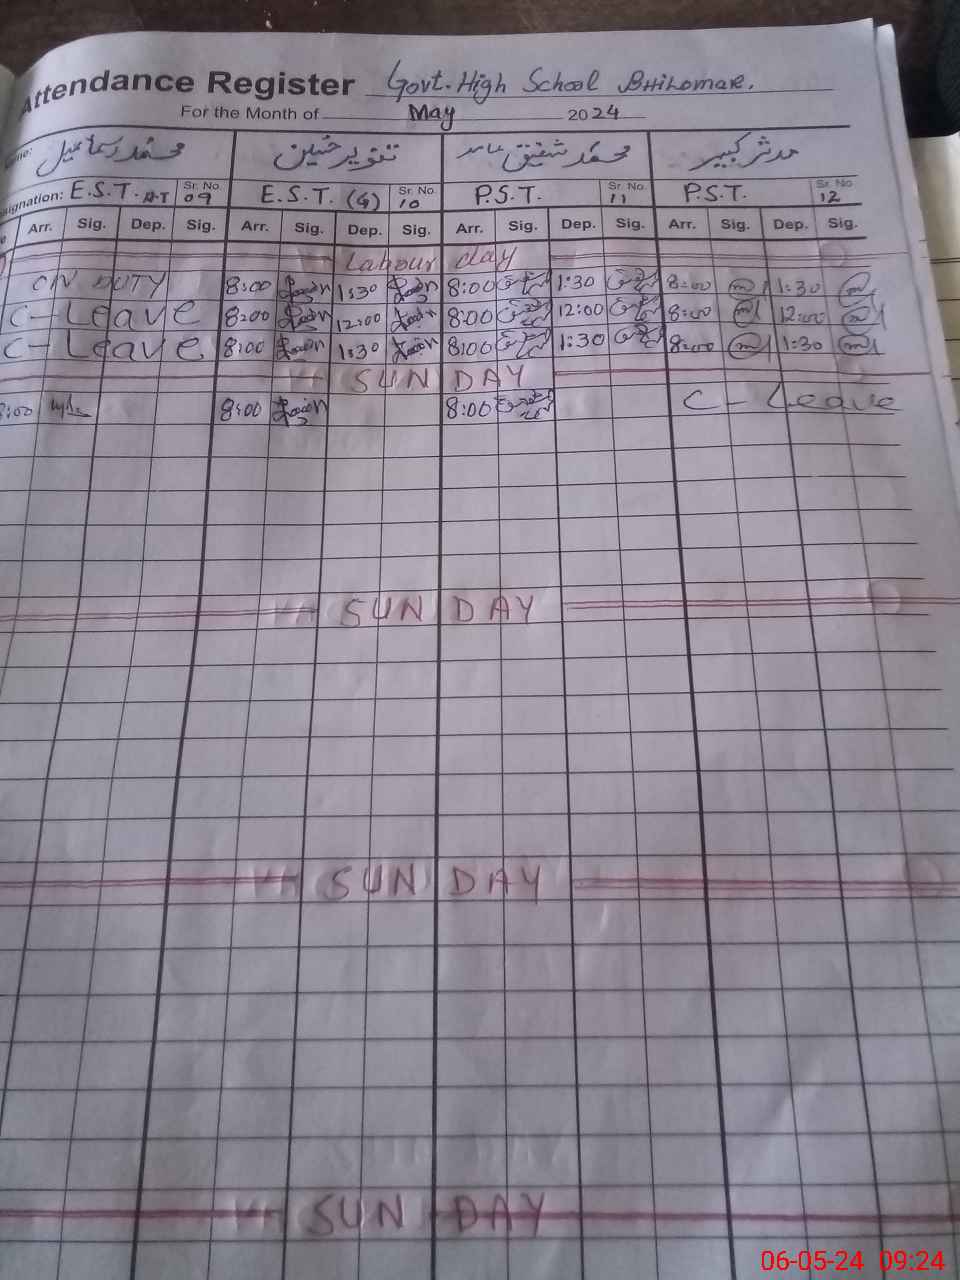 Attendance Register Govt. High School BHILOMAR.
For the Month of May 2024
محمد اسماعیل تنویر حسین محمد شفیق عامر مدثر کبیر
signation: E.S.T. A.T Sr. No. 09 E.S.T. (G) Sr. No. 10 P.S.T. Sr. No. 11 P.S.T. Sr. No. 12
Arr. Sig. Dep. Sig. Arr. Sig. Dep. Sig. Arr. Sig. Dep. Sig. Arr. Sig. Dep. Sig.
Labour day
ON DUTY 8:00 1:30 8:00 1:30 8:00 1:30
C-Leave 8:00 12:00 8:00 12:00 8:00 12:00
C-Leave 8:00 1:30 8:00 1:30 8:00 1:30
SUNDAY
8:00 8:00 8:00 C-Leave
SUNDAY
SUNDAY
SUNDAY
06-05-24 09:24